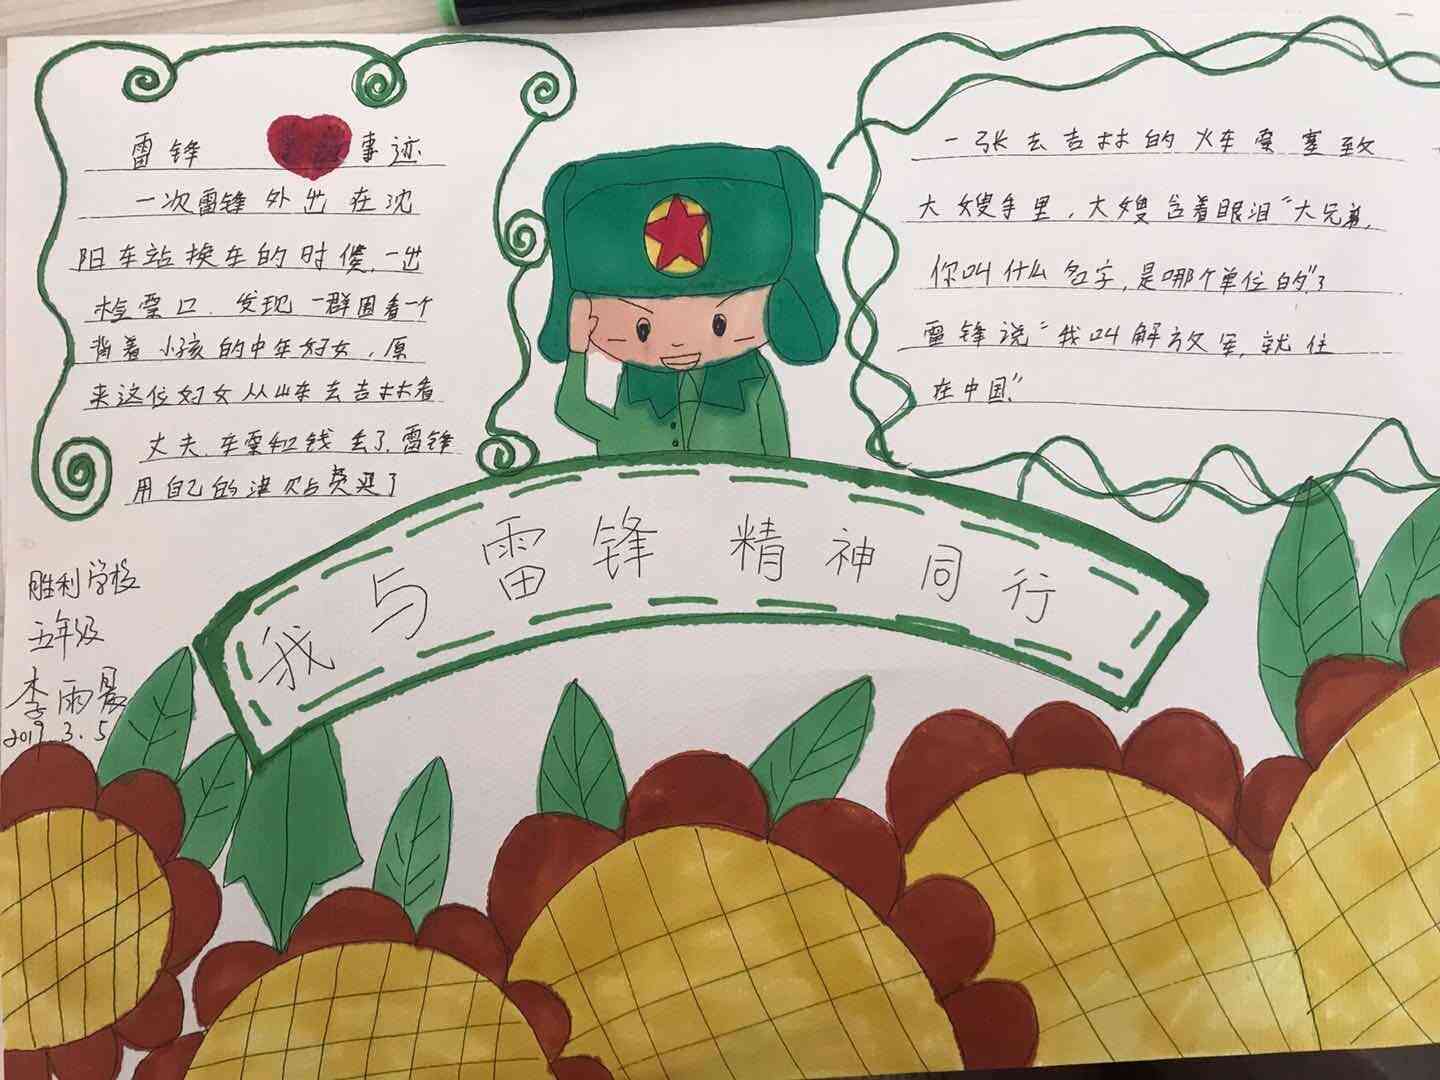 雷锋 事迹
一次雷锋外出在沈
阳车站换车的时候，一出
检票口，发现一群围着一个
背着小孩的中年妇女，原
来这位妇女从山东去吉林看
丈夫，车票和钱丢了，雷锋
用自己的津贴费买了
一张去吉林的火车票塞到
大嫂手里，大嫂含着眼泪“大兄弟，
你叫什么名字，是哪个单位的”？
雷锋说“我叫解放军，就住
在中国”
我与雷锋精神同行
胜利学校
五年级
李雨晨
2019.3.5